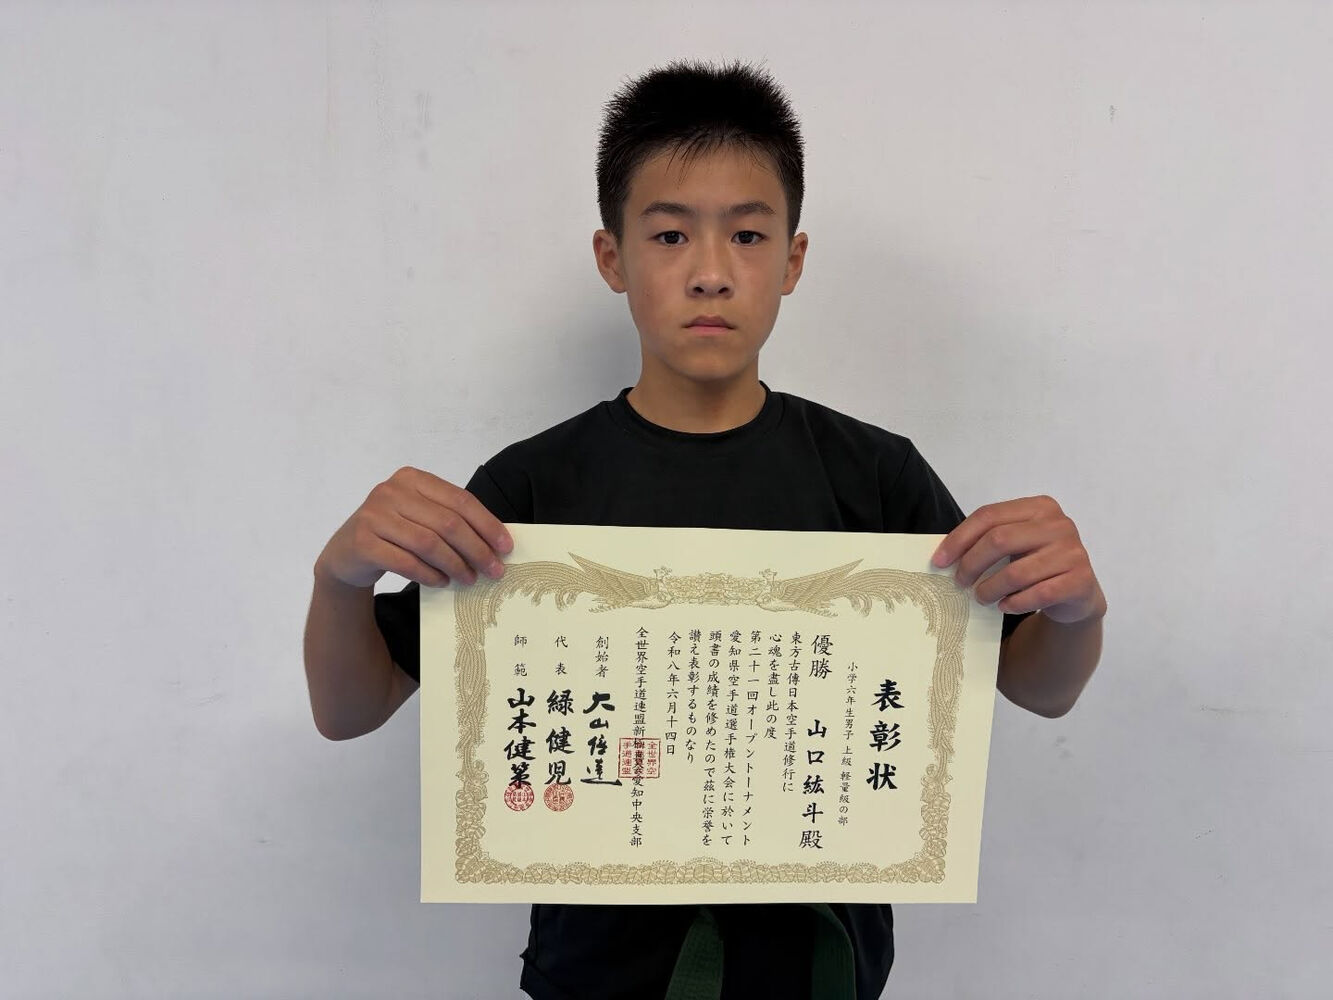 表彰状
小学六年生男子 上級 軽量級の部
優勝 山口紘斗殿
東方古傳日本空手道修行に
心魂を盡し此の度
第二十一回オープントーナメント
愛知県空手道選手権大会に於いて
頭書の成績を修めたので茲に栄誉を
讃え表彰するものなり
令和八年六月十四日
全世界空手道連盟新極真会愛知中央支部
全世界空手道連盟
創始者 大山倍達
代表 緑健児
師範 山本健策